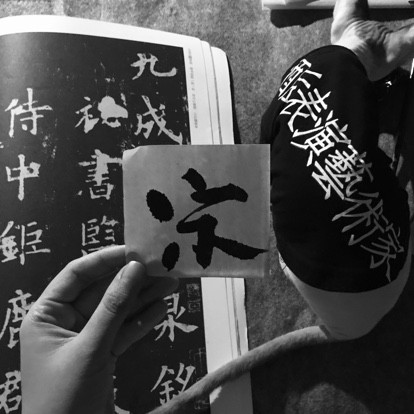 表演藝術家
九成
泉銘
祕書監
侍中鉅鹿郡